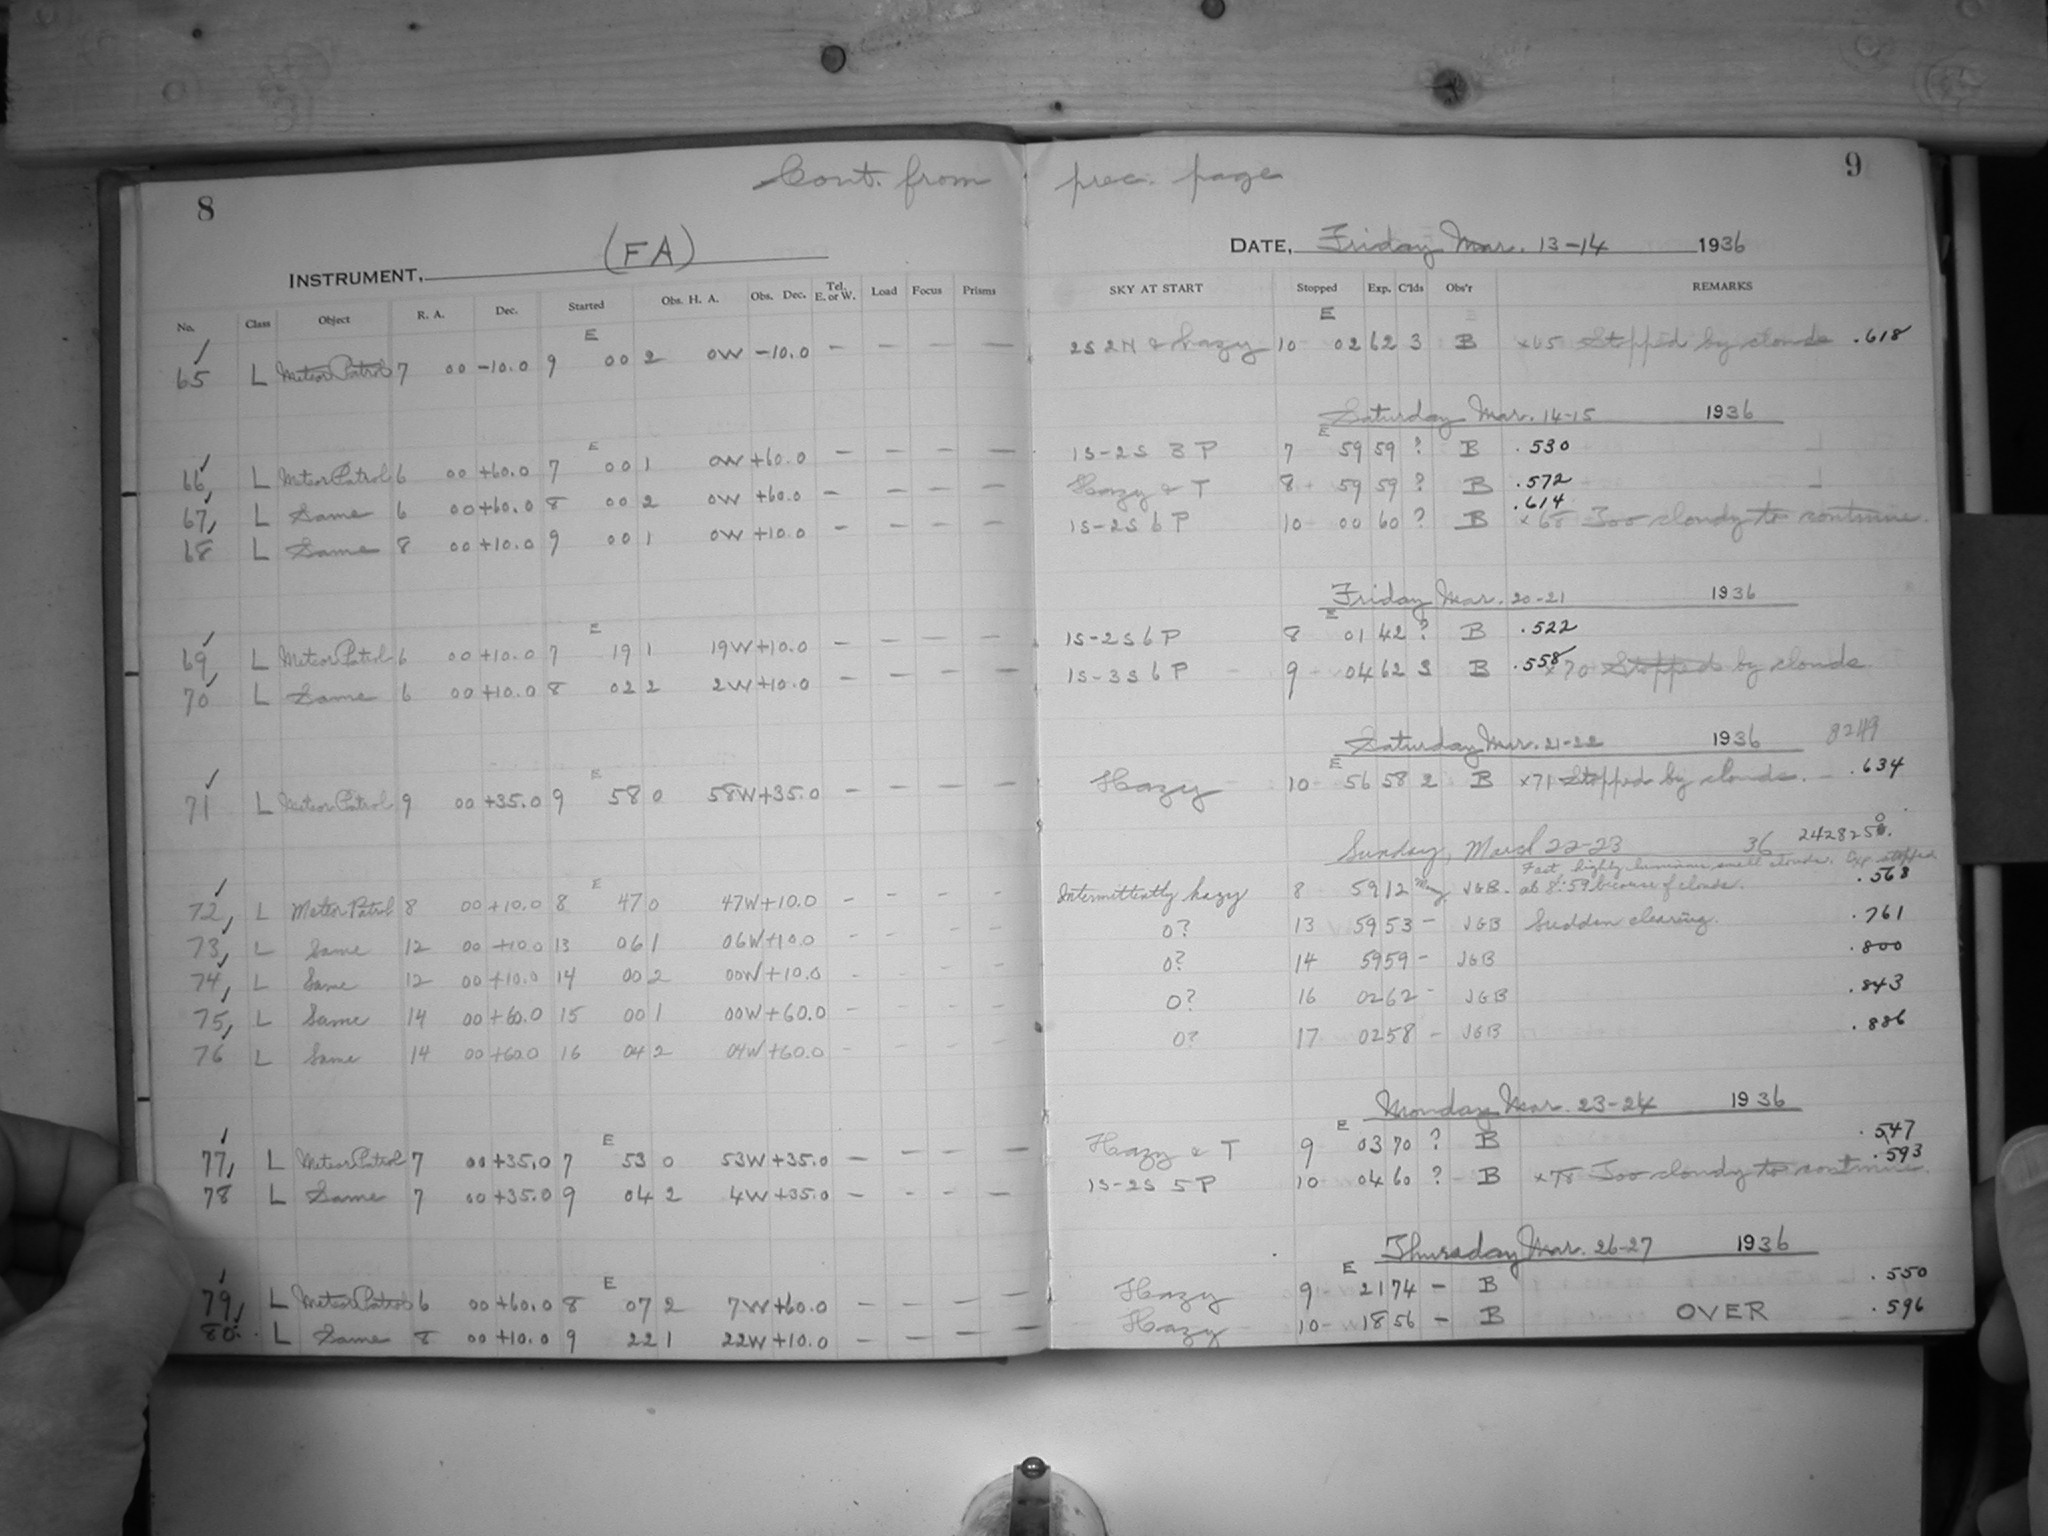 8
Cont. from prec. page
9
INSTRUMENT, (FA)
DATE, Friday Mar. 13-14 1936
No. Class Object R. A. Dec. Started Obs. H. A. Obs. Dec. Tel. E. or W. Load Focus Prisms SKY AT START Stopped Exp. C'lds Obs'r REMARKS
E E
65 L Meteor Patrol 7 00 -10.0 9 00 2 0W -10.0 - - - - 2S 2H & Hazy 10 02 62 3 B ×65 Stopped by clouds .618
Saturday Mar. 14-15 1936
E E
66 L Meteor Patrol 6 00 +60.0 7 00 1 0W +60.0 - - - - 1S-2S 3 P 7 59 59 ? B .530
67, L Same 6 00 +60.0 8 00 2 0W +60.0 - - - - Hazy & T 8 59 59 ? B .572
68 L Same 8 00 +10.0 9 00 1 0W +10.0 - - - - 1S-2S 6 P 10 00 60 ? B .614 ×68 Too cloudy to continue.
Friday Mar. 20-21 1936
E E
69, L Meteor Patrol 6 00 +10.0 7 19 1 19W +10.0 - - - - 1S-2S 6 P 8 01 42 ? B .522
70 L Same 6 00 +10.0 8 02 2 2W +10.0 - - - - 1S-3S 6 P 9 04 62 3 B .558 ×70 Stopped by clouds
Saturday Mar. 21-22 1936 8249
E E
71 L Meteor Patrol 9 00 +35.0 9 58 0 58W +35.0 - - - - Hazy 10 56 58 2 B ×71 Stopped by clouds. .634
Sunday, March 22-23 36 2428250.
Fast, highly luminous, small clouds. Exp. stopped
E
72, L Meteor Patrol 8 00 +10.0 8 47 0 47W +10.0 - - - - Intermittently hazy 8 59 12 Many JGB. at 8:59 because of clouds. .568
73, L Same 12 00 +10.0 13 06 1 06W +10.0 - - - - 0? 13 59 53 - JGB Sudden clearing. .761
74, L Same 12 00 +10.0 14 00 2 00W +10.0 - - - - 0? 14 59 59 - JGB .800
75, L Same 14 00 +60.0 15 00 1 00W +60.0 - - - - 0? 16 02 62 - JGB .843
76 L Same 14 00 +60.0 16 04 2 04W +60.0 - - - - 0? 17 02 58 - JGB .886
Monday Mar. 23-24 1936
E E
77, L Meteor Patrol 7 00 +35.0 7 53 0 53W +35.0 - - - - Hazy & T 9 03 70 ? B .547
78 L Same 7 00 +35.0 9 04 2 4W +35.0 - - - - 1S-2S 5 P 10 04 60 ? B ×78 Too cloudy to continue. .593
Thursday Mar. 26-27 1936
E E
79, L Meteor Patrol 6 00 +60.0 8 07 2 7W +60.0 - - - - Hazy 9 21 74 - B .550
80. L Same 8 00 +10.0 9 22 1 22W +10.0 - - - - Hazy 10 18 56 - B OVER .596